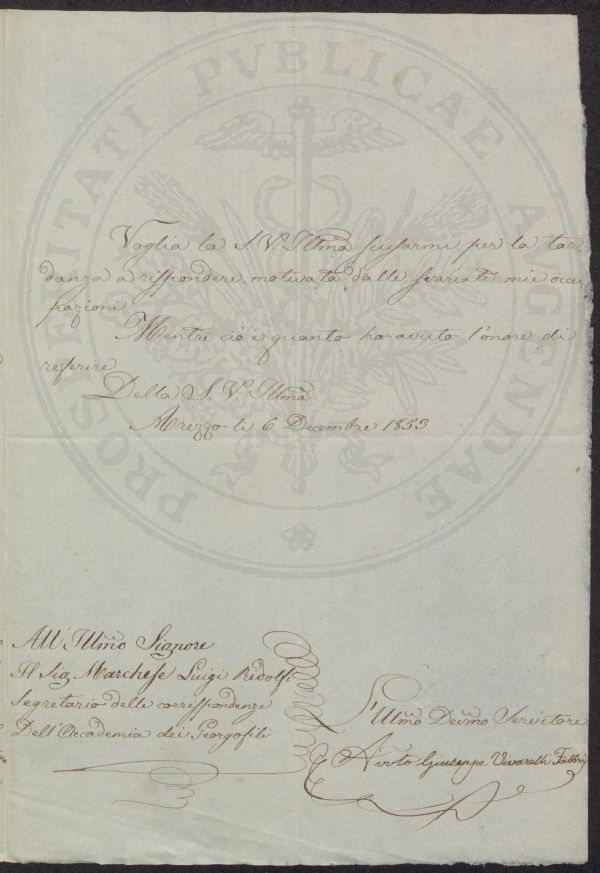 PROSPERITATI PVBLICAE AVGENDAE
Voglia la S. V. Illma scusarmi per la tar-
danza a risspondere motivata dalle svariate mie occu-
pazioni
Mentre ciò è quanto ho avuto l'onore di
referire
Della S. V. Illma
Arezzo li 6 Decembre 1853
All' Illmo Signore
Il Sig. Marchese Luigi Ridolfi
Segretario delle corrispondenze
Dell'Accademia dei Georgofili
L'Umo Devmo Servitore
Avvto Giuseppe Vivarelli Fabbri